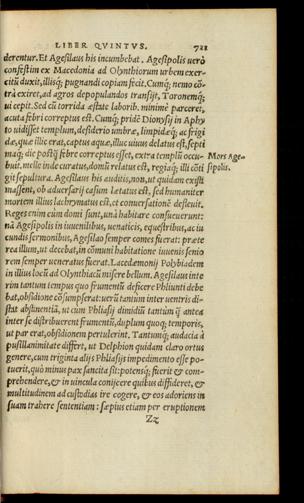 LIBER QVINTVS. 721
derentur. Et Agesilaus his incumbebat. Agesipolis uerò
confestim ex Macedonia ad Olynthiorum urbem exer-
citũ duxit, illisq; pugnandi copiam fecit. Cumq; nemo cõ-
trà exiret, ad agros depopulandos transijt, Toronemq;
ui cepit. Sed cũ torrida æstate laborib. minimè parceret,
acuta febri correptus est. Cumq; pridẽ Dionysij in Aphy
to uidisset templum, desiderio umbræ, limpidæq; ac frigi
dæ, quæ illic erat, captus aquæ, illuc uiuus delatus est, septi
maq; die postq̃ febre correptus esset, extra templũ occu-
buit. melle inde curatus, domũ relatus est, regiaq; illi cõti
git sepultura. Agesilaus his auditis, non, ut quidam existi
massent, ob aduersarij casum lætatus est, sed humaniter
mortem illius lachrymatus est, et conuersationẽ desleuit.
Reges enim cùm domi sunt, unà habitare consueuerunt:
nã Agesipolis in iuuenilibus, uenaticis, equestribus, ac iu
cundis sermonibus, Agesilao semper comes fuerat: præte
rea illum, ut decebat, in cõmuni habitatione iuuenis senio
rem semper ueneratus fuerat. Lacedæmonij Polybiadem
in illius locũ ad Olynthiacũ misere bellum. Agesilaus inte
rim tantum tempus quo frumentũ deficere Phliunti debe
bat, obsidione cõsumpserat: uerũ tantùm inter uentris di-
stat abstinentiã, ut cum Phliasij dimidiũ tantùm q̃ antea
inter se distribuerent frumentũ, duplum quoq; temporis,
ut par erat, obsidionem pertulerint. Tantumq; audacia à
pusillanimitate differt, ut Delphion quidam claro ortus
genere, cum triginta alijs Phliasijs impedimento esse po-
tuerit, quò minus pax sancita sit: potensq; fuerit & com-
prehendere, & in uincula conijcere quibus diffideret, &
multitudinem ad custodias ire cogere, & eos adoriens in
suam trahere sententiam: sæpius etiam per eruptionem
Zz
Mors Age-
sipolis.